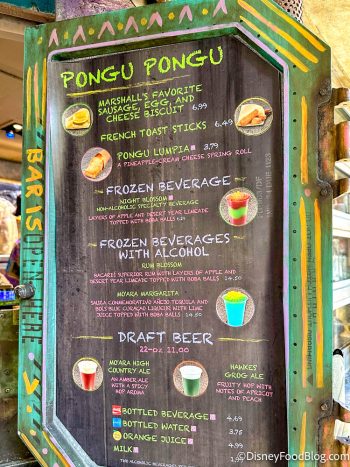 PONGU PONGU
MARSHALL'S FAVORITE
SAUSAGE, EGG, AND
CHEESE BISCUIT 6.99
FRENCH TOAST STICKS 6.49
PONGU LUMPIA 3.79
A PINEAPPLE-CREAM CHEESE SPRING ROLL
FROZEN BEVERAGE
NIGHT BLOSSOM
NON-ALCOHOLIC SPECIALTY BEVERAGE
LAYERS OF APPLE AND DESERT PEAR LIMEADE
TOPPED WITH BOBA BALLS
FROZEN BEVERAGES
WITH ALCOHOL
RUM BLOSSOM
BACARDI SUPERIOR RUM WITH LAYERS OF APPLE AND
DESERT PEAR LIMEADE TOPPED WITH BOBA BALLS 14.50
MO'ARA MARGARITA
SAUZA CONMEMORATIVO AÑEJO TEQUILA AND
BOLS BLUE CURACAO LIQUEUR WITH LIME
JUICE TOPPED WITH BOBA BALLS 14.50
DRAFT BEER
22-OZ 11.00
MO'ARA HIGH
COUNTRY ALE
AN AMBER ALE
WITH A SPICY
HOP AROMA
HAWKES'
GROG ALE
FRUITY HOP WITH
NOTES OF APRICOT
AND PEACH
BOTTLED BEVERAGE 4.69
BOTTLED WATER 3.75
ORANGE JUICE 4.99
MILK
TWO ALCOHOLIC BEVERAGES
BAR IS
OPEN HERE
©DisneyFoodBlog.com